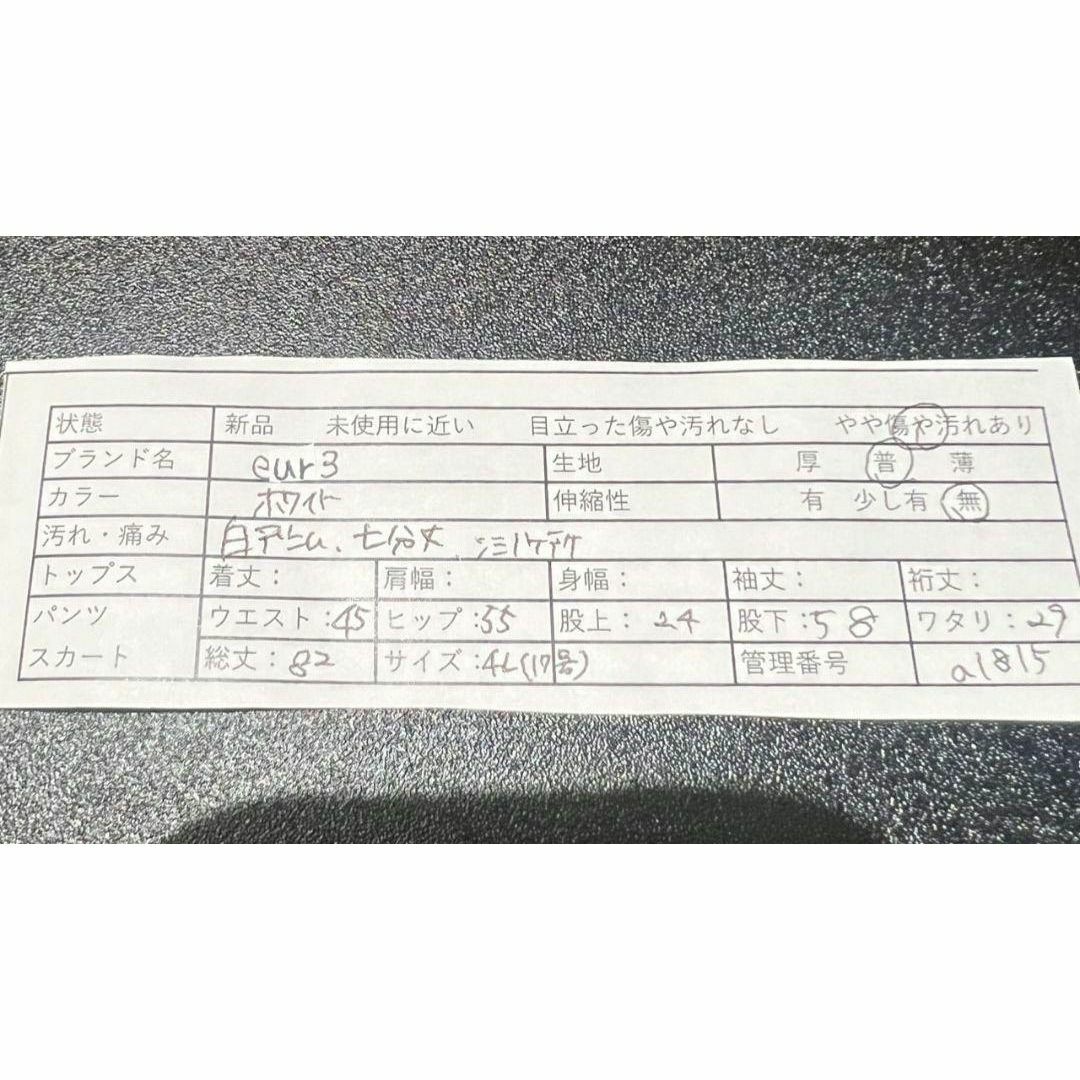 状態 新品 未使用に近い 目立った傷や汚れなし やや傷や汚れあり
ブランド名 eur3 生地 厚 普 薄
カラー ホワイト 伸縮性 有 少し有 無
汚れ・痛み 白デニム、七分丈、シミ1ヶ所
トップス 着丈： 肩幅： 身幅： 袖丈： 裄丈：
パンツ ウエスト：45 ヒップ：55 股上：24 股下：58 ワタリ：29
スカート 総丈：82 サイズ：4L(17号) 管理番号 a1815